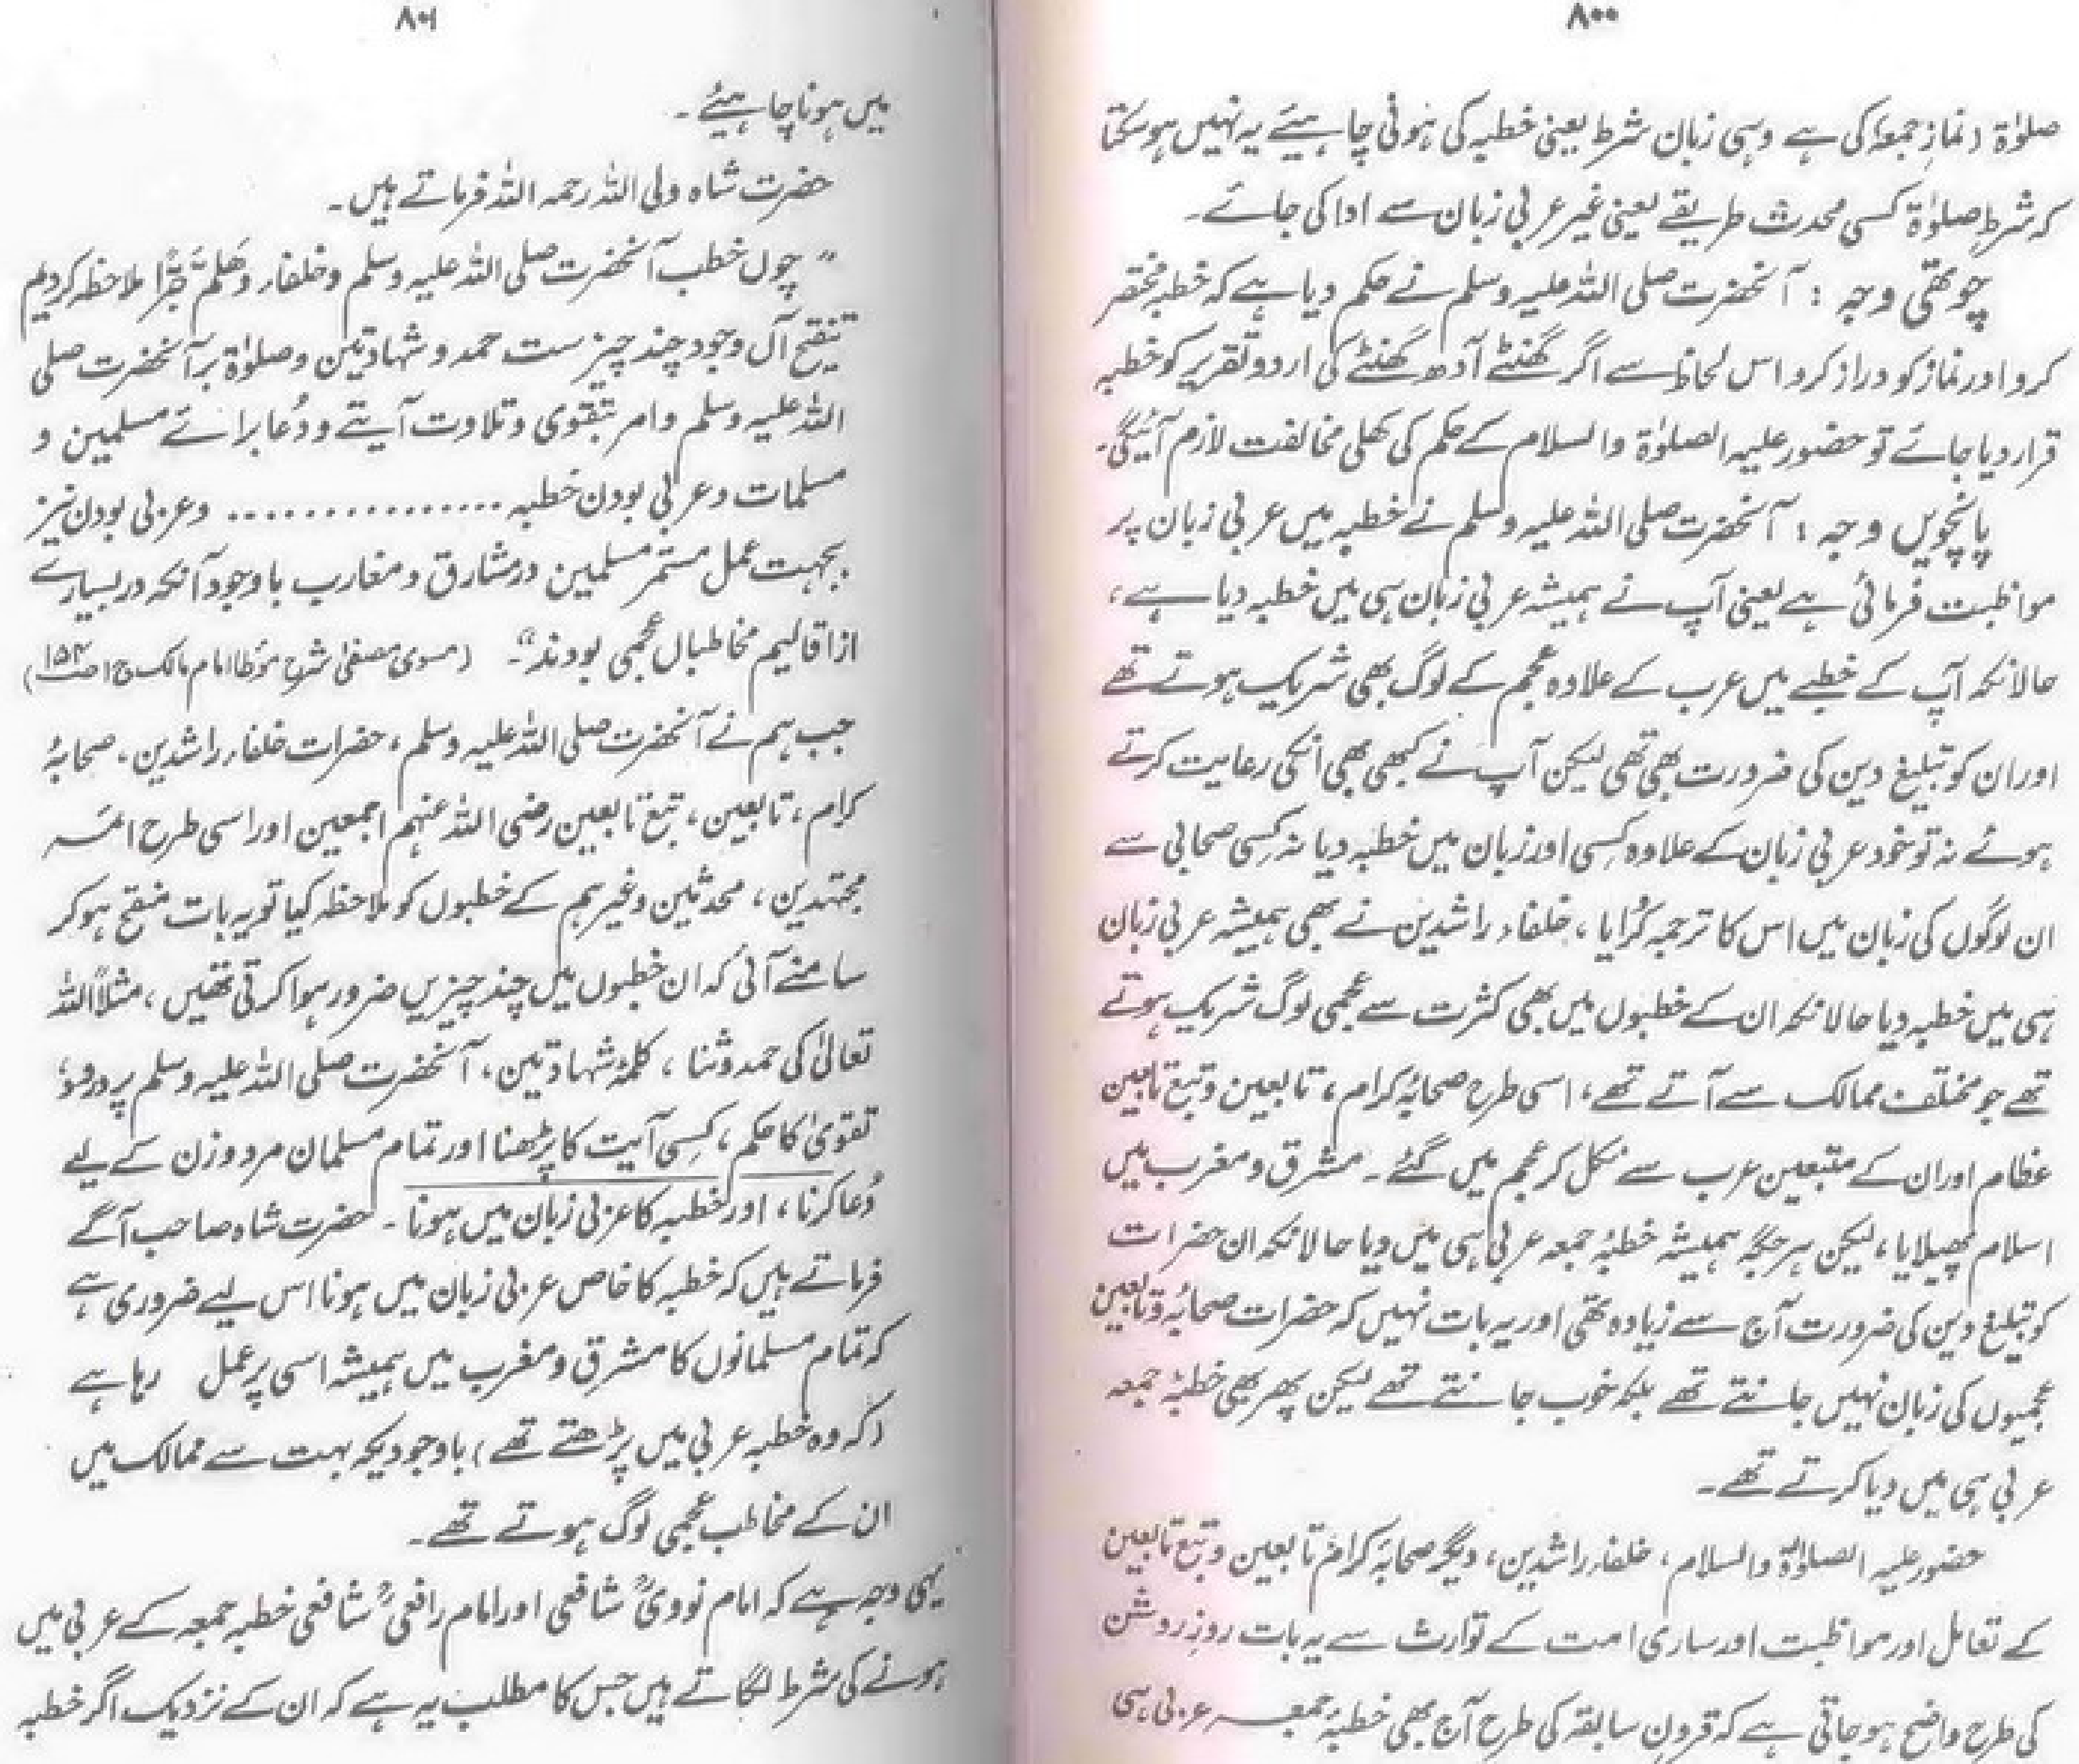 ۸۰۰
صلوٰۃ (نمازِ جمعہ) کی ہے وہی زبان شرط یعنی خطبہ کی ہونی چاہیئے یہ نہیں ہو سکتا
کہ شرطِ صلوٰۃ کسی محدث طریقے یعنی غیر عربی زبان سے ادا کی جائے۔
چوتھی وجہ : آنحضرت صلی اللہ علیہ وسلم نے حکم دیا ہے کہ خطبہ مختصر
کرو اور نماز کو دراز کرو اس لحاظ سے اگر گھنٹے آدھ گھنٹے کی اردو تقریر کو خطبہ
قرار دیا جائے تو حضور علیہ الصلوٰۃ والسلام کے حکم کی کھلی مخالفت لازم آئیگی۔
پانچویں وجہ : آنحضرت صلی اللہ علیہ وسلم نے خطبہ میں عربی زبان پر
مواظبت فرمائی ہے یعنی آپ نے ہمیشہ عربی زبان ہی میں خطبہ دیا ہے،
حالانکہ آپ کے خطبے میں عرب کے علاوہ عجم کے لوگ بھی شریک ہوتے تھے
اور ان کو تبلیغ دین کی ضرورت بھی تھی لیکن آپ نے کبھی بھی انکی رعایت کرتے
ہوئے نہ تو خود عربی زبان کے علاوہ کسی اور زبان میں خطبہ دیا نہ کسی صحابی سے
ان لوگوں کی زبان میں اس کا ترجمہ کرایا، خلفاء راشدین نے بھی ہمیشہ عربی زبان
ہی میں خطبہ دیا حالانکہ ان کے خطبوں میں بھی کثرت سے عجمی لوگ شریک ہوتے
تھے جو مختلف ممالک سے آتے تھے، اسی طرح صحابۂ کرام، تابعین و تبع تابعین
عظام اور ان کے متبعین عرب سے نکل کر عجم میں گئے۔ مشرق و مغرب میں
اسلام پھیلایا، لیکن ہر جگہ ہمیشہ خطبۂ جمعہ عربی ہی میں دیا حالانکہ ان حضرات
کو تبلیغ دین کی ضرورت آج سے زیادہ تھی اور یہ بات نہیں کہ حضرات صحابہؓ و تابعین
عجمیوں کی زبان نہیں جانتے تھے بلکہ خوب جانتے تھے لیکن پھر بھی خطبۂ جمعہ
عربی ہی میں دیا کرتے تھے۔
حضور علیہ الصلوٰۃ والسلام، خلفاء راشدین، دیگر صحابۂ کرام تابعین و تبع تابعین
کے تعامل اور مواظبت اور ساری امت کے توارث سے یہ بات روزِ روشن
کی طرح واضح ہو جاتی ہے کہ قرونِ سابقہ کی طرح آج بھی خطبۂ جمعہ عربی ہی
۸۰۱
میں ہونا چاہیئے۔
حضرت شاہ ولی اللہ رحمہ اللہ فرماتے ہیں۔
" چوں خطب آنحضرت صلی اللہ علیہ وسلم و خلفاء و ھَلُمَّ جَرًّا ملاحظہ کردیم
تنقیح آں وجود چند چیز ست حمد و شہادتین و صلوٰۃ بر آنحضرت صلی
اللہ علیہ وسلم و امر بتقوی و تلاوت آیتے و دُعا برائے مسلمین و
مسلمات و عربی بودن خطبہ ............... و عربی بودن نیز
بجہت عمل مستمر مسلمین در مشارق و مغارب باوجود آنکہ در بسیارے
از اقالیم مخاطباں عجمی بودند"۔ (مسوی مصفیٰ شرح مؤطا امام مالک ج ۱ ص ۱۵۴)
جب ہم نے آنحضرت صلی اللہ علیہ وسلم، حضرات خلفاء راشدین، صحابۂ
کرام، تابعین، تبع تابعین رضی اللہ عنہم اجمعین اور اسی طرح ائمہ
مجتہدین، محدثین وغیرہم کے خطبوں کو ملاحظہ کیا تو یہ بات منقح ہو کر
سامنے آئی کہ ان خطبوں میں چند چیزیں ضرور ہوا کرتی تھیں، مثلاً اللہ
تعالیٰ کی حمد و ثنا، کلمۂ شہادتین، آنحضرت صلی اللہ علیہ وسلم پر درود،
تقویٰ کا حکم، کسی آیت کا پڑھنا اور تمام مسلمان مرد و زن کے لیے
دُعا کرنا، اور خطبہ کا عربی زبان میں ہونا۔ حضرت شاہ صاحب آگے
فرماتے ہیں کہ خطبہ کا خاص عربی زبان میں ہونا اس لیے ضروری ہے
کہ تمام مسلمانوں کا مشرق و مغرب میں ہمیشہ اسی پر عمل رہا ہے
(کہ وہ خطبہ عربی میں پڑھتے تھے) باوجودیکہ بہت سے ممالک میں
ان کے مخاطب عجمی لوگ ہوتے تھے۔
یہی وجہ ہے کہ امام نوویؒ شافعی اور امام رافعیؒ شافعی خطبہ جمعہ کے عربی میں
ہونے کی شرط لگاتے ہیں جس کا مطلب یہ ہے کہ ان کے نزدیک اگر خطبہ